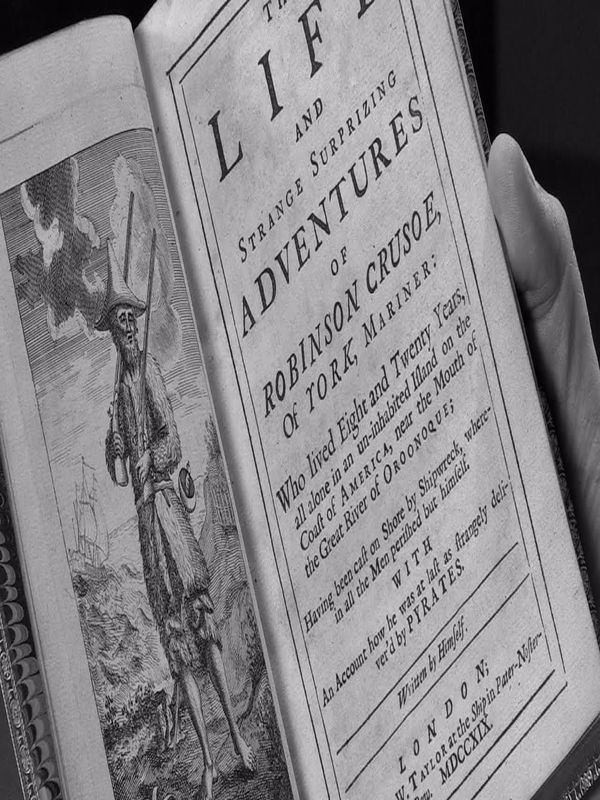 LIFE
AND
STRANGE SURPRIZING
ADVENTURES
OF
ROBINSON CRUSOE,
Of YORK, MARINER:
Who lived Eight and Twenty Years,
all alone in an un-inhabited Iſland on the
Coaſt of AMERICA, near the Mouth of
the Great River of OROONOQUE;
Having been caſt on Shore by Shipwreck, where-
in all the Men periſhed but himſelf.
WITH
An Account how he was at laſt as ſtrangely deli-
ver'd by PYRATES.
Written by Himſelf.
LONDON;
W. TAYLOR at the Ship in Pater-Noſter-
MDCCXIX.